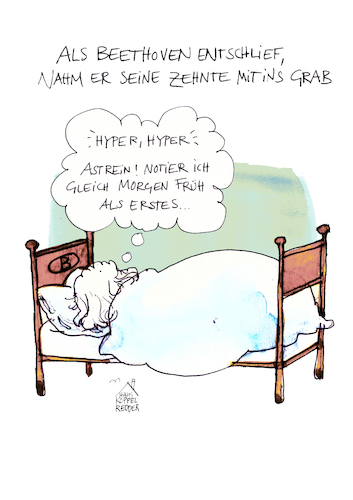 ALS BEETHOVEN ENTSCHLIEF,
NAHM ER SEINE ZEHNTE MIT INS GRAB
HYPER, HYPER
ASTREIN! NOTIER ICH
GLEICH MORGEN FRÜH
ALS ERSTES...
B
HAUS
KIPPEL
REDDER